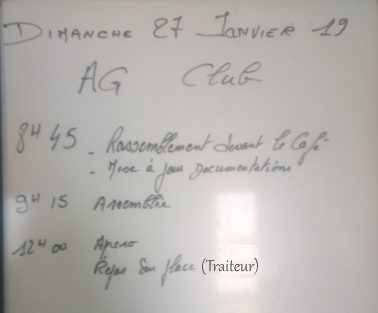 DIMANCHE 27 JANVIER 19
AG Club
8H45 - Rassemblement devant le Café
- Mise à jour Documentations
9H15 Assemblée
12H00 Apero
Repas Sur place (Traiteur)